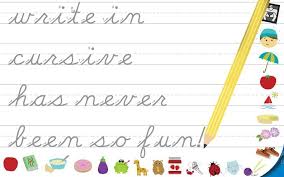 write in
cursive
has never
been so fun!